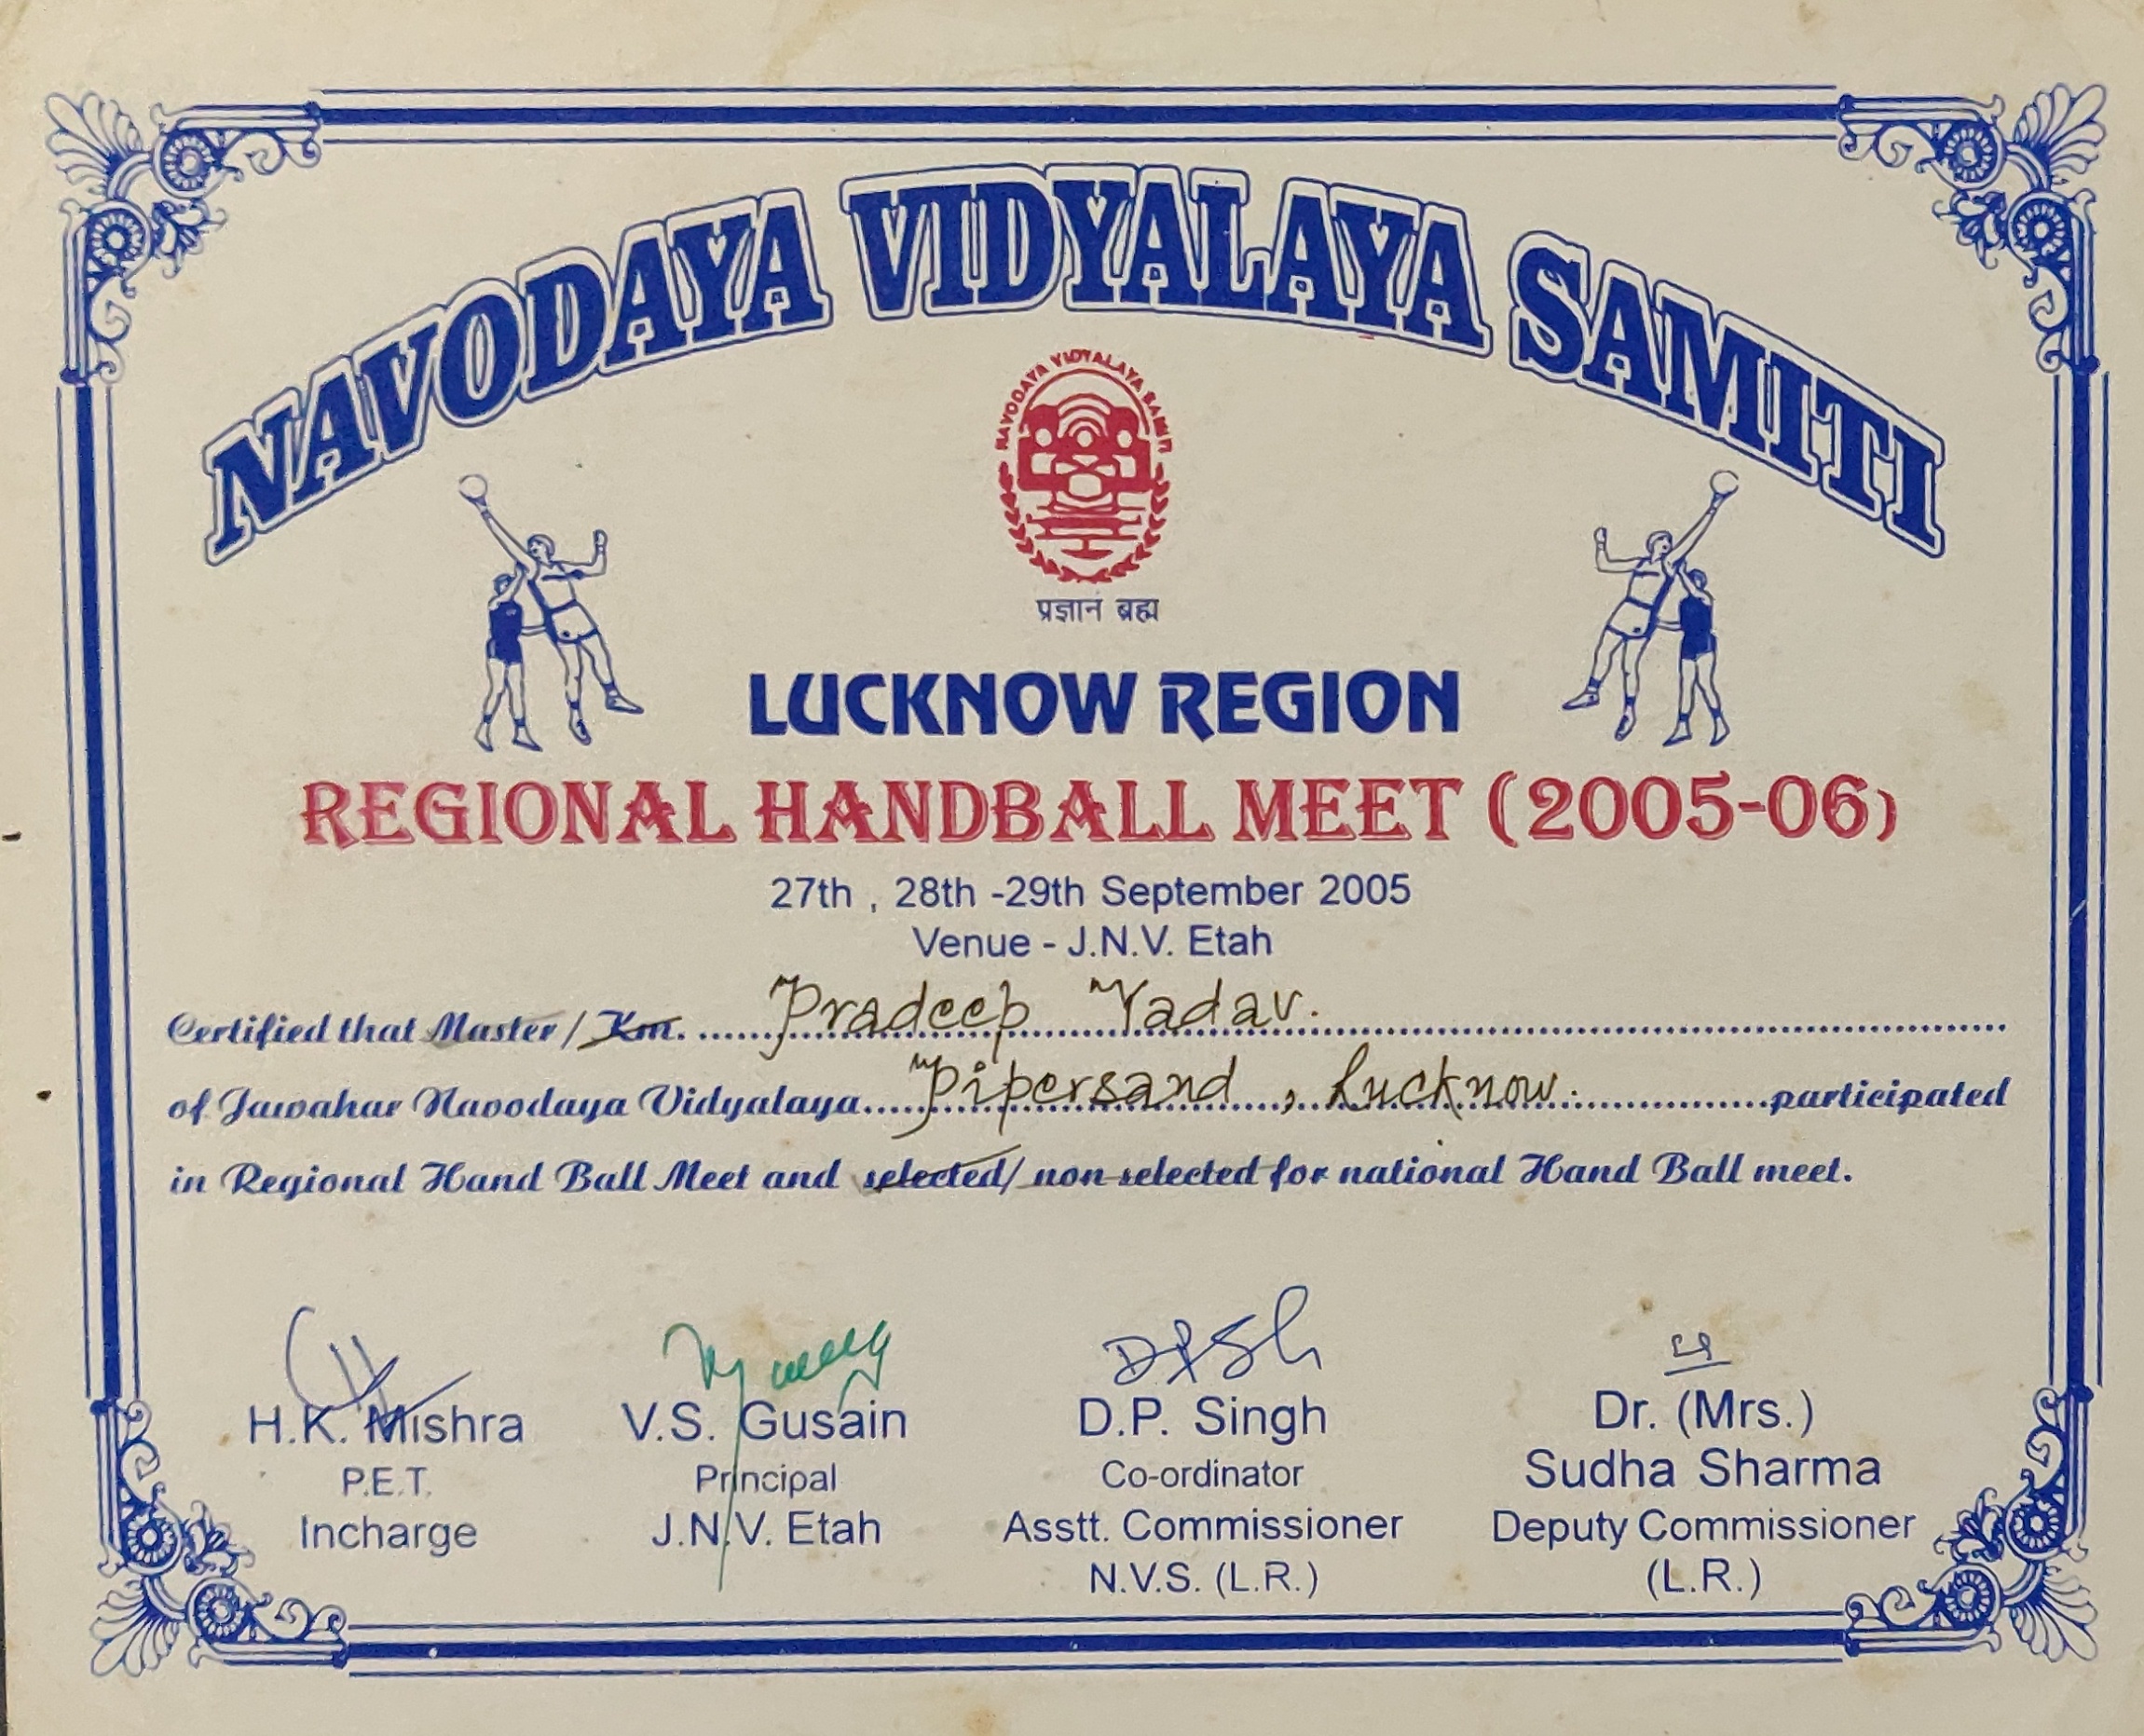 NAVODAYA VIDYALAYA SAMITI
NAVODAYA VIDYALAYA SAMITI
प्रज्ञानं ब्रह्म
LUCKNOW REGION
REGIONAL HANDBALL MEET (2005-06)
27th , 28th -29th September 2005
Venue - J.N.V. Etah
Certified that Master / Km. Pradeep Yadav.
of Jawahar Navodaya Vidyalaya Pipersand , Lucknow. participated
in Regional Hand Ball Meet and selected/ non-selected for national Hand Ball meet.
H.K. Mishra
P.E.T.
Incharge
V.S. Gusain
Principal
J.N.V. Etah
D.P. Singh
Co-ordinator
Asstt. Commissioner
N.V.S. (L.R.)
Dr. (Mrs.)
Sudha Sharma
Deputy Commissioner
(L.R.)